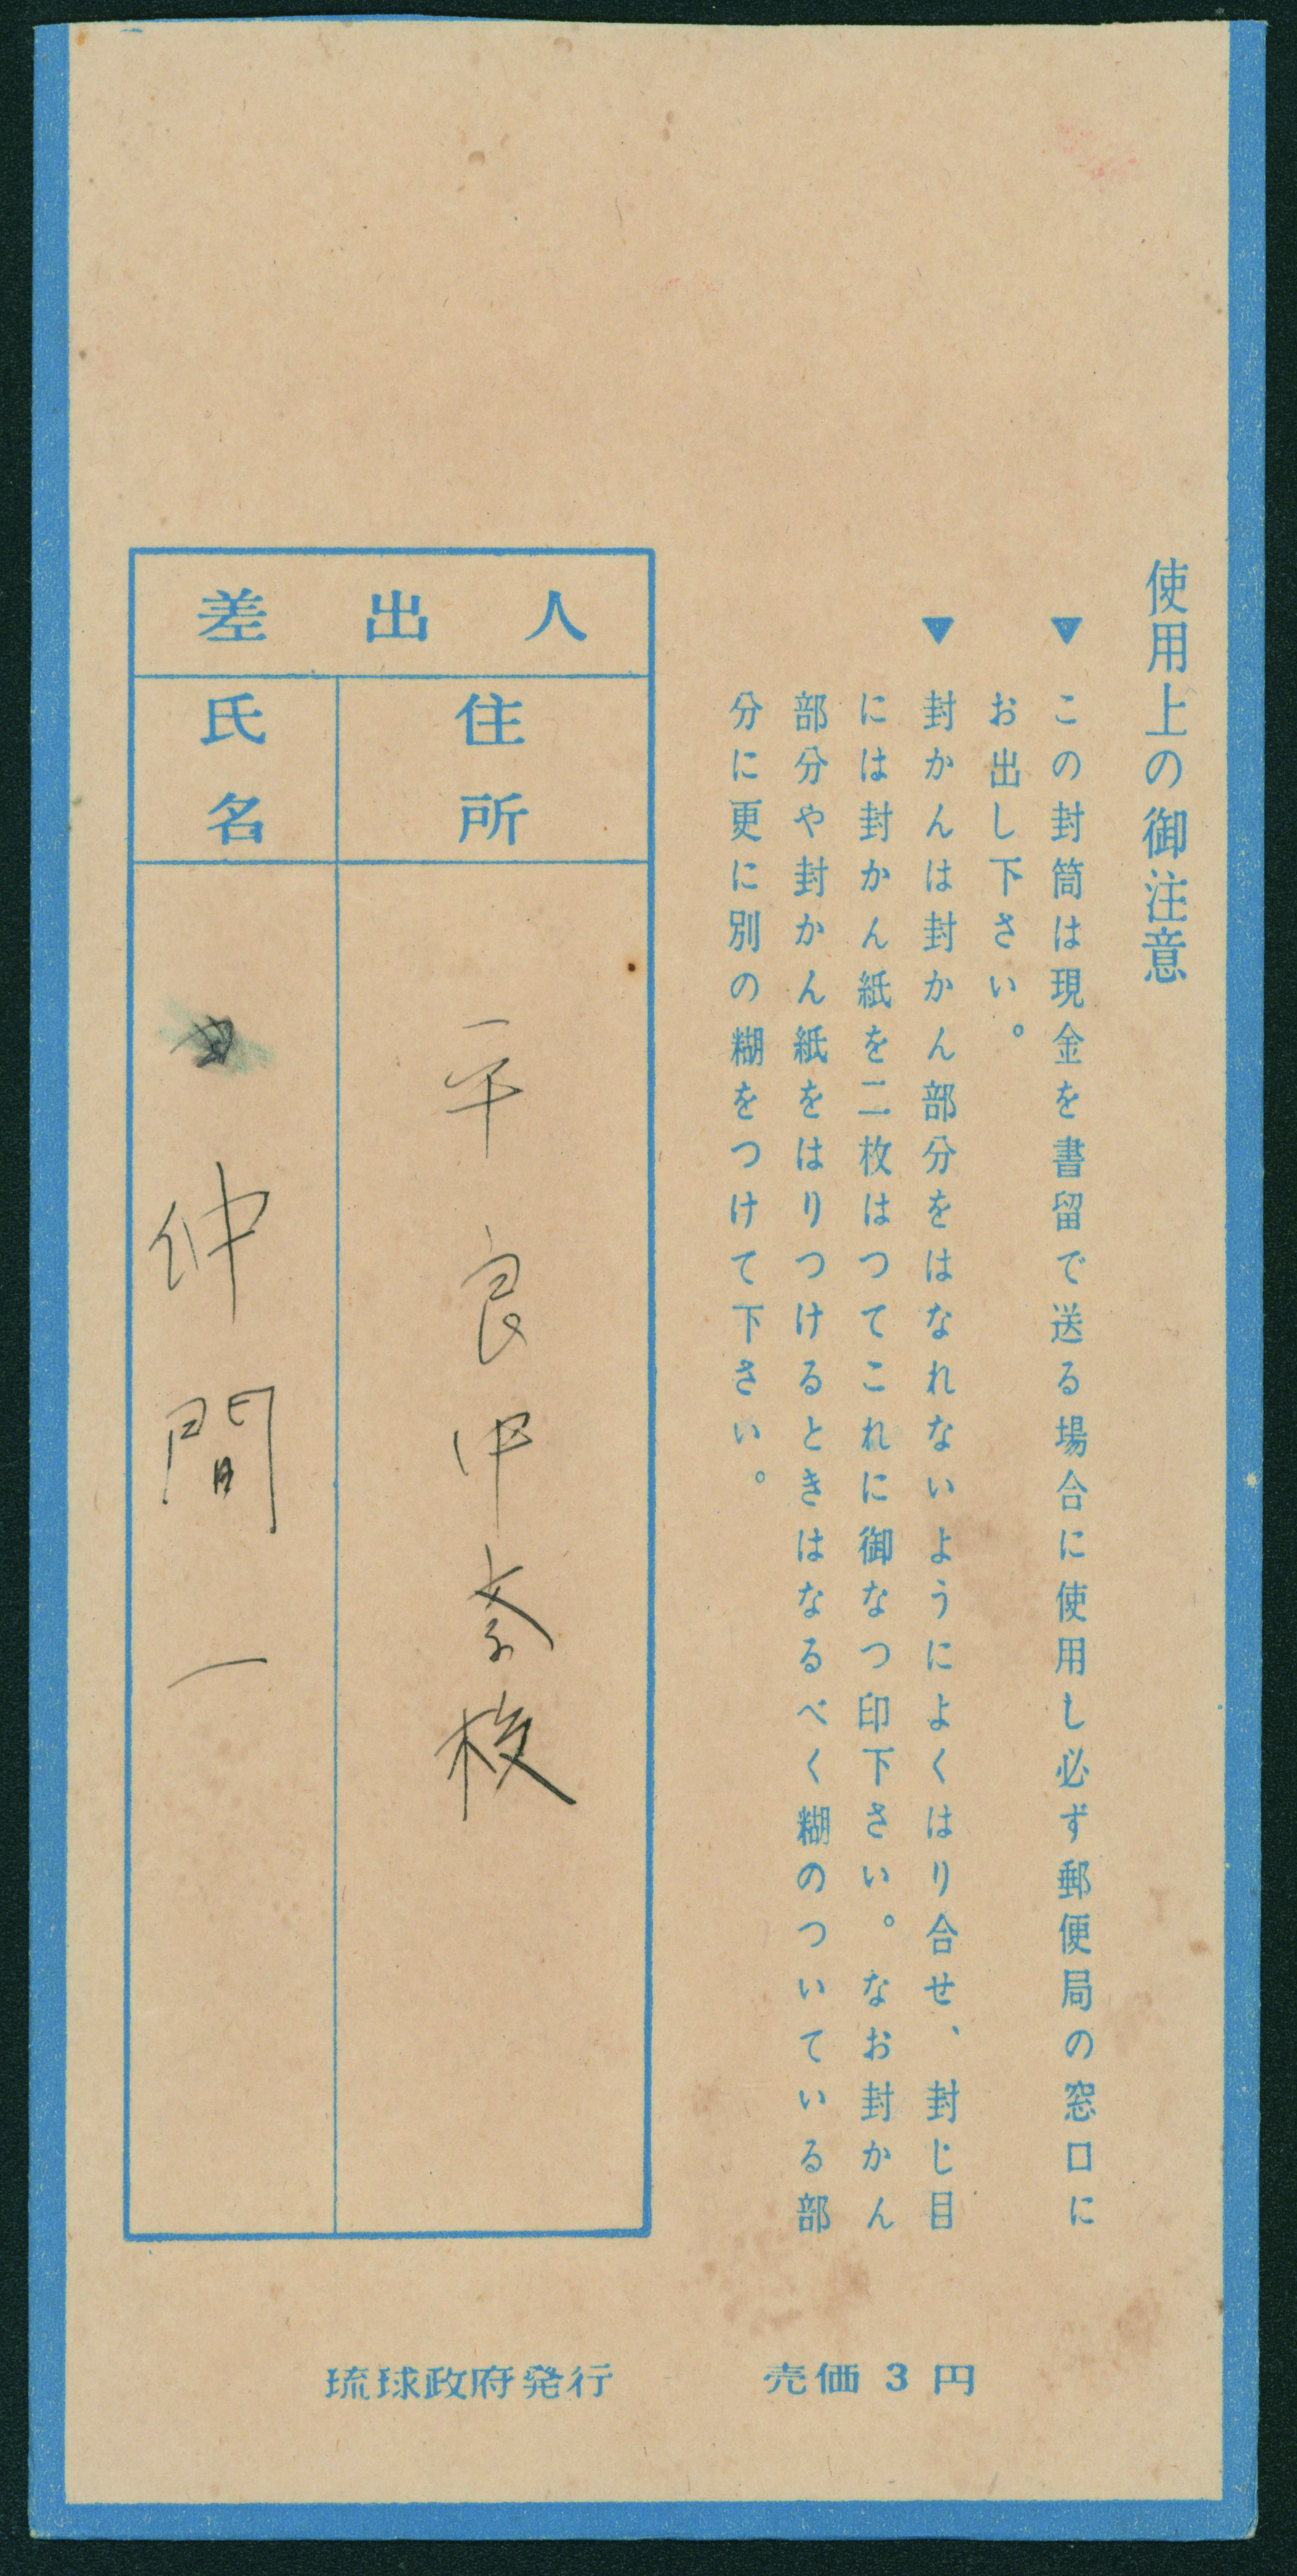 使用上の御注意
▼この封筒は現金を書留で送る場合に使用し必ず郵便局の窓口に
お出し下さい。
▼封かんは封かん部分をはなれないようによくはり合せ、封じ目
には封かん紙を二枚はつてこれに御なつ印下さい。なお封かん
部分や封かん紙をはりつけるときはなるべく糊のついている部
分に更に別の糊をつけて下さい。
差出人
住所
平良中学校
氏名
仲間一
琉球政府発行
売価3円